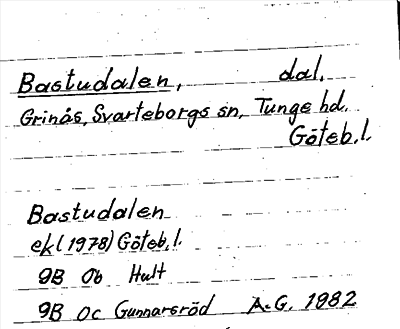 Bastudalen, dal,
Grinås, Svarteborgs sn, Tunge hd.
Göteb.l.
Bastudalen
ek(1978) Göteb.l.
9B 0b Hult
9B 0c Gunnarsröd A.G. 1982